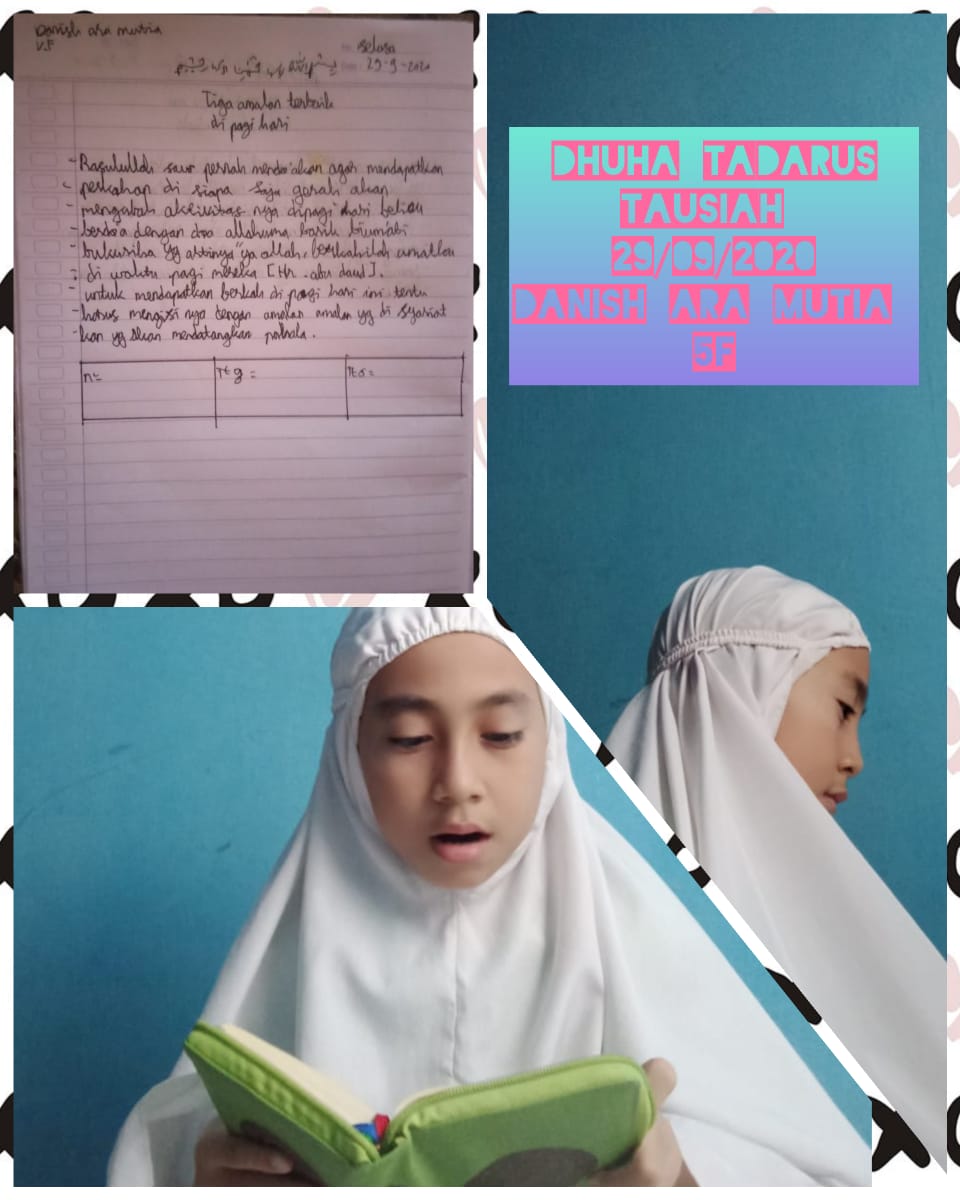 Danish ara mutia
V.F
selasa
29-9-2020
Tiga amalan terbaik
di pagi hari
- Rasulullah saw pernah mendo'akan agar mendapatkan
di siapa saja
- mengubah aktivitas nya dipagi hari beliau
- berdoa dengan doa allahuma barik liumati
bukuriha yg artinya "ya allah, berkahilah umatku
di waktu pagi mereka [Hr. abu daud].
- untuk mendapatkan berkah di pagi hari ini tentu
- harus mengisi nya dengan amalan amalan yg di syariat
- kan yg akan mendatangkan pahala.
n=
Ttg =
Tto=
DHUHA TADARUS
TAUSIAH
29/09/2020
DANISH ARA MUTIA
5F